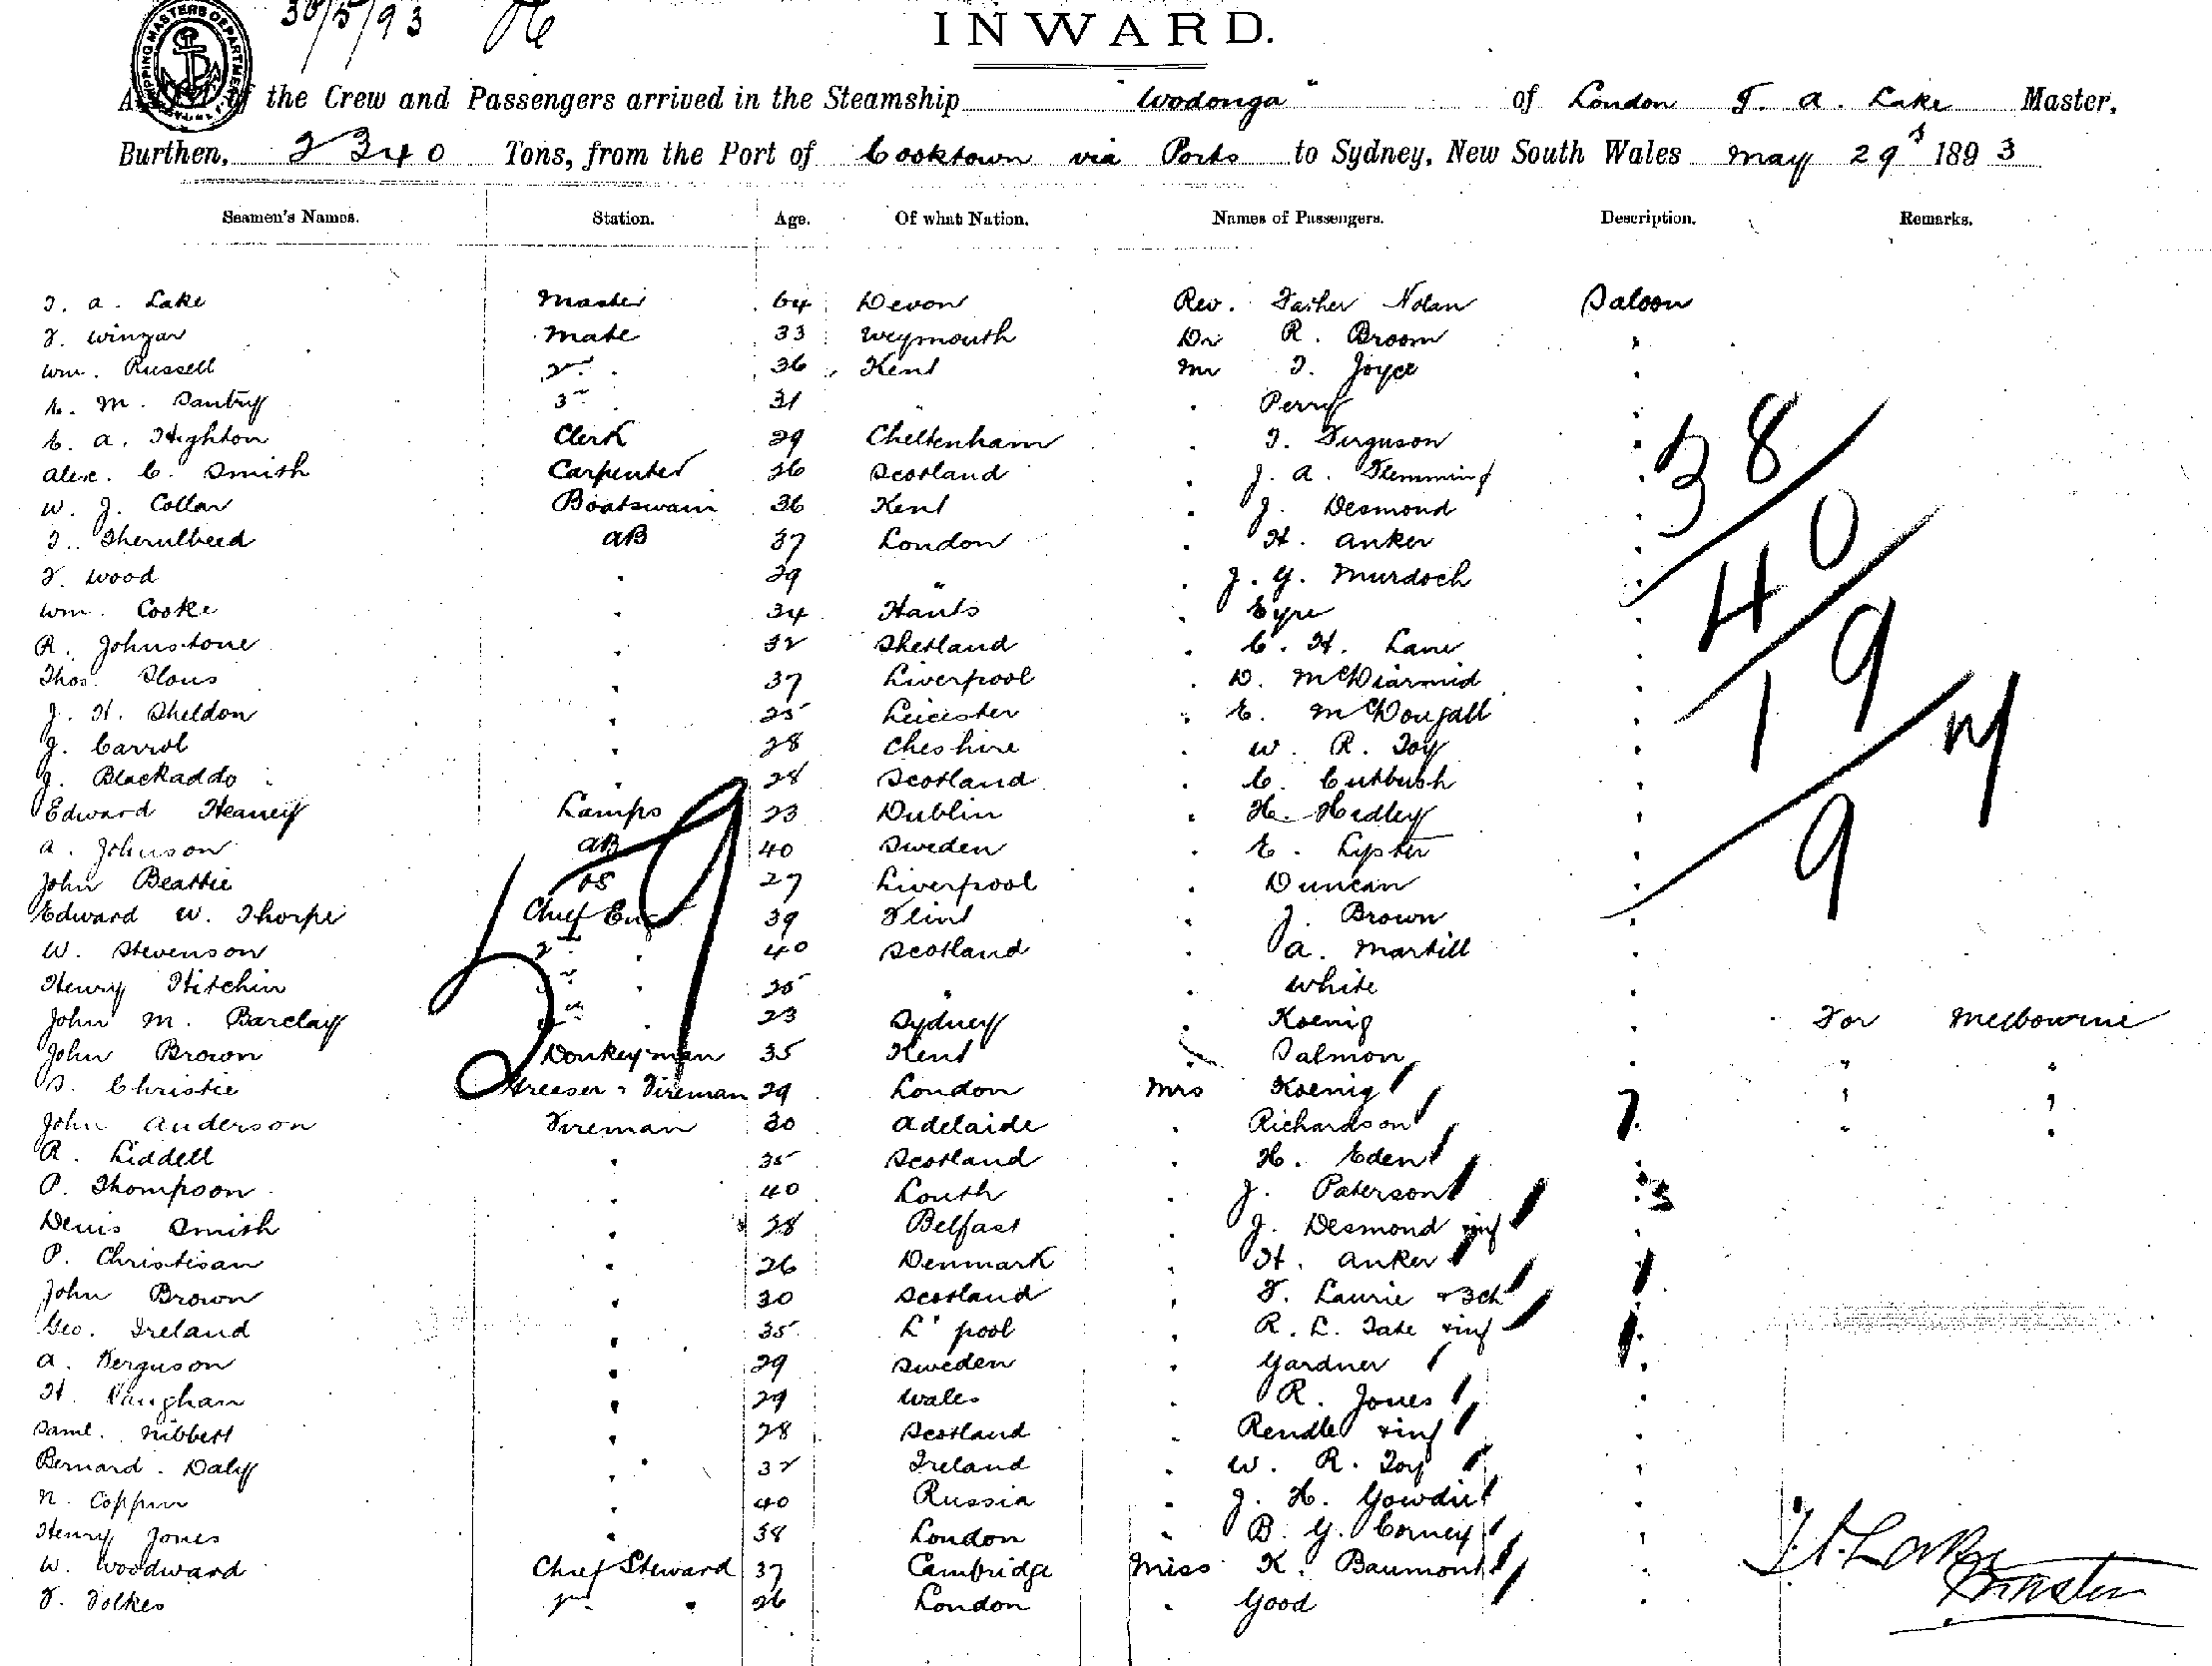 SHIPPING MASTERS DEPARTMENT
30/5/93
INWARD.
A of the Crew and Passengers arrived in the Steamship "Wodonga" of London T. A. Lake Master,
Burthen, 2340 Tons, from the Port of Cooktown via Ports to Sydney, New South Wales May 29 1893
Seamen's Names. Station. Age. Of what Nation. Names of Passengers. Description. Remarks.
T. A. Lake Master 64 Devon Rev. Father Nolan Saloon
F. Winzar Mate 33 Weymouth Dr R. Broom
Wm. Russell 2nd 36 Kent Mr T. Joyce
E. M. Santry 3rd 31 " Perry
E. A. Highton Clerk 29 Cheltenham T. Ferguson
Alex. C. Smith Carpenter 26 Scotland J. A. Flemming
W. J. Collar Boatswain 36 Kent J. Desmond
T. AB 37 London H. Anker
F. Wood 29 " J. G. Murdoch
Wm. Cooke 34 Hants Eyre
R. Johnstone 32 Shetland C. H. Lane
Thos. 37 Liverpool D. McDiarmid
J. H. Sheldon 25 Leicester E. McDougall
J. Carrol 28 Cheshire W. R. Toy
J. Blackaddo 28 Scotland C. Cutbush
Edward Heaney Lamps 23 Dublin H. Hedley
A. Johnson AB 40 Sweden E. Lyster
John Beattie OS 27 Liverpool Duncan
Edward W. Thorpe Chief Eng 39 Flint J. Brown
W. Stevenson 2nd 40 Scotland A. Martill
Henry Hitchin 3rd 25 " White
John M. Barclay 23 Sydney Koenig For Melbourne
John Brown Donkeyman 35 Kent Salmon " "
S. Christie Greaser & Fireman 29 London Mrs Koenig " "
John Anderson Fireman 30 Adelaide Richardson " "
R. Liddell 35 Scotland H. Eden
P. Thompson 40 Louth J. Paterson
Denis Smith 28 Belfast J. Desmond inf
P. Christisan 26 Denmark H. Anker
John Brown 30 Scotland F. Laurie & 3ch
Geo. Ireland 35 L'pool R. L. Tate & inf
A. Ferguson 29 Sweden Gardner
H. Vaughan 29 Wales R. Jones
Saml. Nibbett 28 Scotland Rendle & inf
Bernard Daly 32 Ireland W. R. Toy
N. Coppin 40 Russia J. H. Gowdie
Henry Jones 38 London B. G. Corney
W. Woodward Chief Steward 37 Cambridge Miss K. Baumont
F. Folkes 2nd 26 London Good
38/40/19/9
59
7
3
T. A. Lake
Master